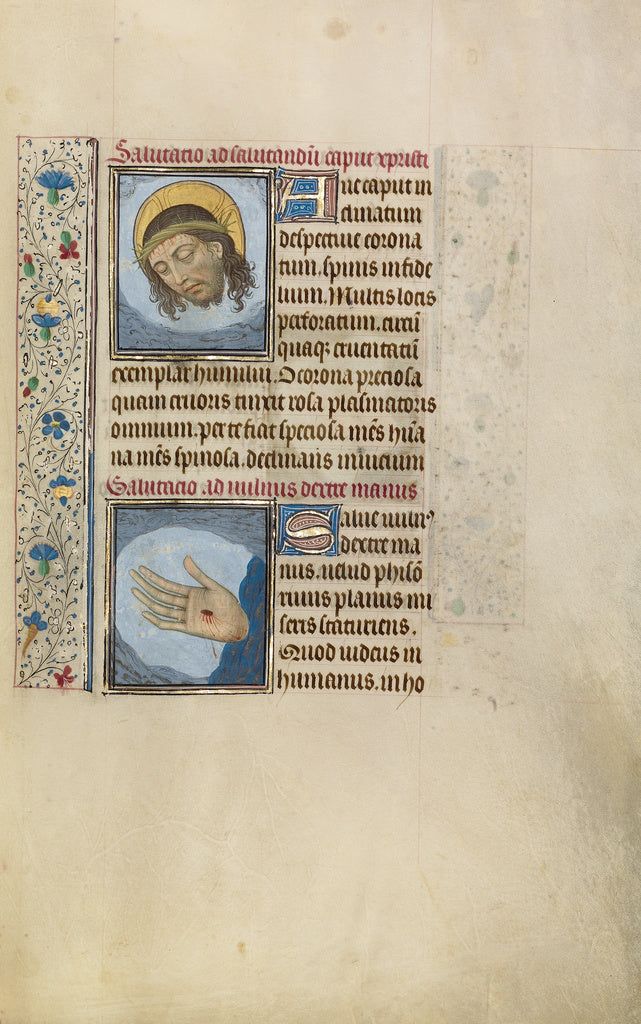 Salutatio ad salutandū caput xpristi
Aue caput in
clinatum
despectiue corona
tum. spinis infide
lium. Multis locis
perforatum. cruētī
quaqꝫ cruentatū
exemplar humiliū. O corona preciosa
quam cruoris tinxit rosa plasmatoris
omnium. per te fiat speciosa mēs hūa
na mēs spinosa. declinans
Salutatio ad uulnus dextre manus
Salue uulnꝰ
dextre ma
nus. uelud phisō
riuus planus mi
seris scaturiens.
Quod uideus in
humanus. in ho